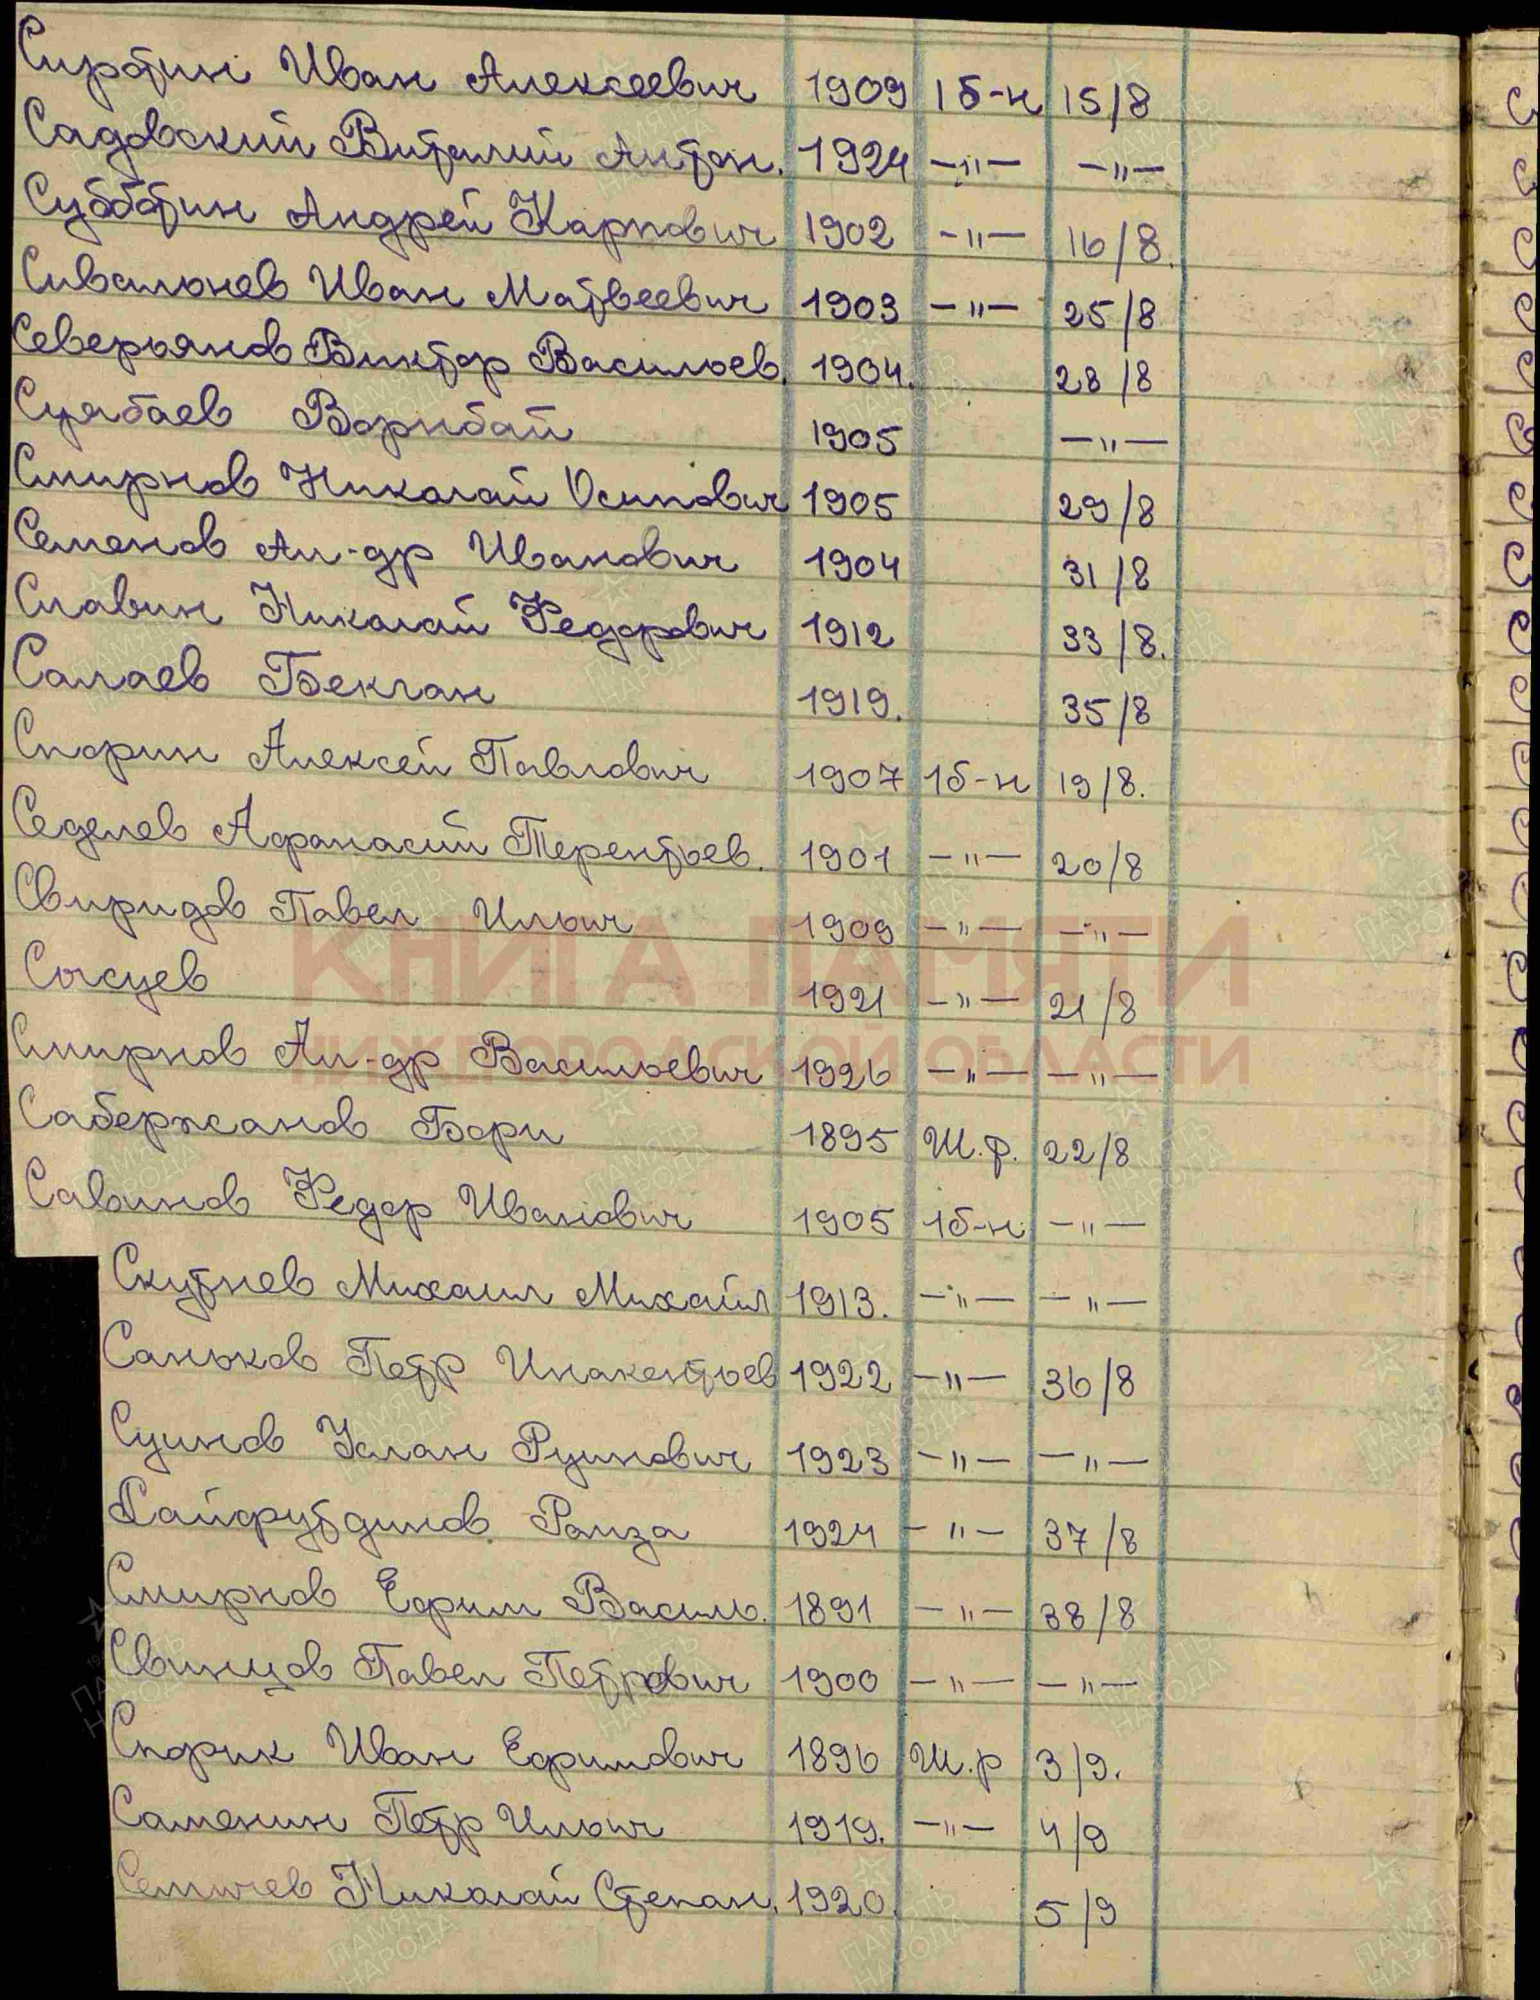 Сиротин Иван Алексеевич 1909 1б-н 15/8
Садовский Виталий Антон. 1924 -"- -"-
Субботин Андрей Карпович 1902 -"- 16/8.
Сивальнев Иван Матвеевич 1903 -"- 25/8
Северьянов Виктор Васильев. 1904. 28/8
Суябаев Ворибай 1905 -"-
Смирнов Николай Осипович 1905 29/8
Семенов Ал-др Иванович 1904 31/8
Славин Николай Федорович 1912 33/8.
Салаев Бекган 1919. 35/8
Спорин Алексей Павлович 1907 1б-н 19/8.
Седелев Афанасий Терентьев. 1901 -"- 20/8
Свиридов Павел Ильич 1909 -"- -"-
Сысуев 1921 -"- 21/8
КНИГА ПАМЯТИ
Смирнов Ал-др Васильевич 1926 -"- -"-
НИЖЕГОРОДСКОЙ ОБЛАСТИ
Сабержанов Бори 1895 Ш.р. 22/8
Савинов Федор Иванович 1905 1б-н -"-
Скутнев Михаил Михайл 1913. -"- -"-
Саньков Петр Инакентьев 1922 -"- 36/8
Суинов Улан Руинович 1923 -"- -"-
Сайфутдинов Раиза 1924 -"- 37/8
Смирнов Ефрим Василь. 1891 -"- 38/8
Свинцов Павел Петрович 1900 -"- -"-
Спорик Иван Ефримович 1896 Ш.р 3/9.
Саменин Петр Ильич 1919. -"- 4/9
Семичев Николай Степан. 1920. 5/9